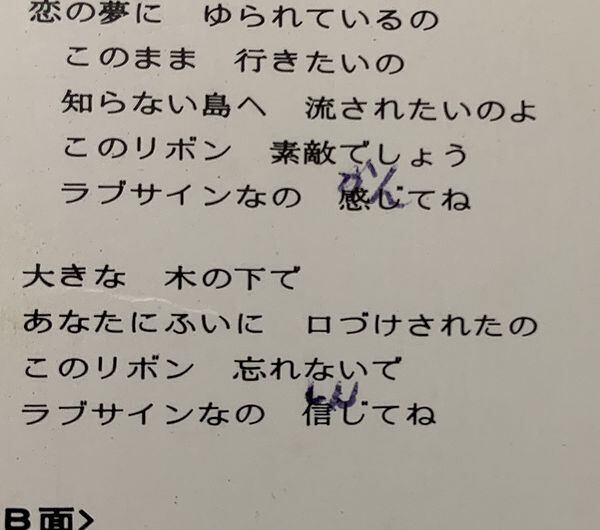 恋の夢に　ゆられているの
このまま　行きたいの
知らない島へ　流されたいのよ
このリボン　素敵でしょう
かん
ラブサインなの　感じてね
大きな　木の下で
あなたにふいに　口づけされたの
このリボン　忘れないで
しん
ラブサインなの　信じてね
B面>